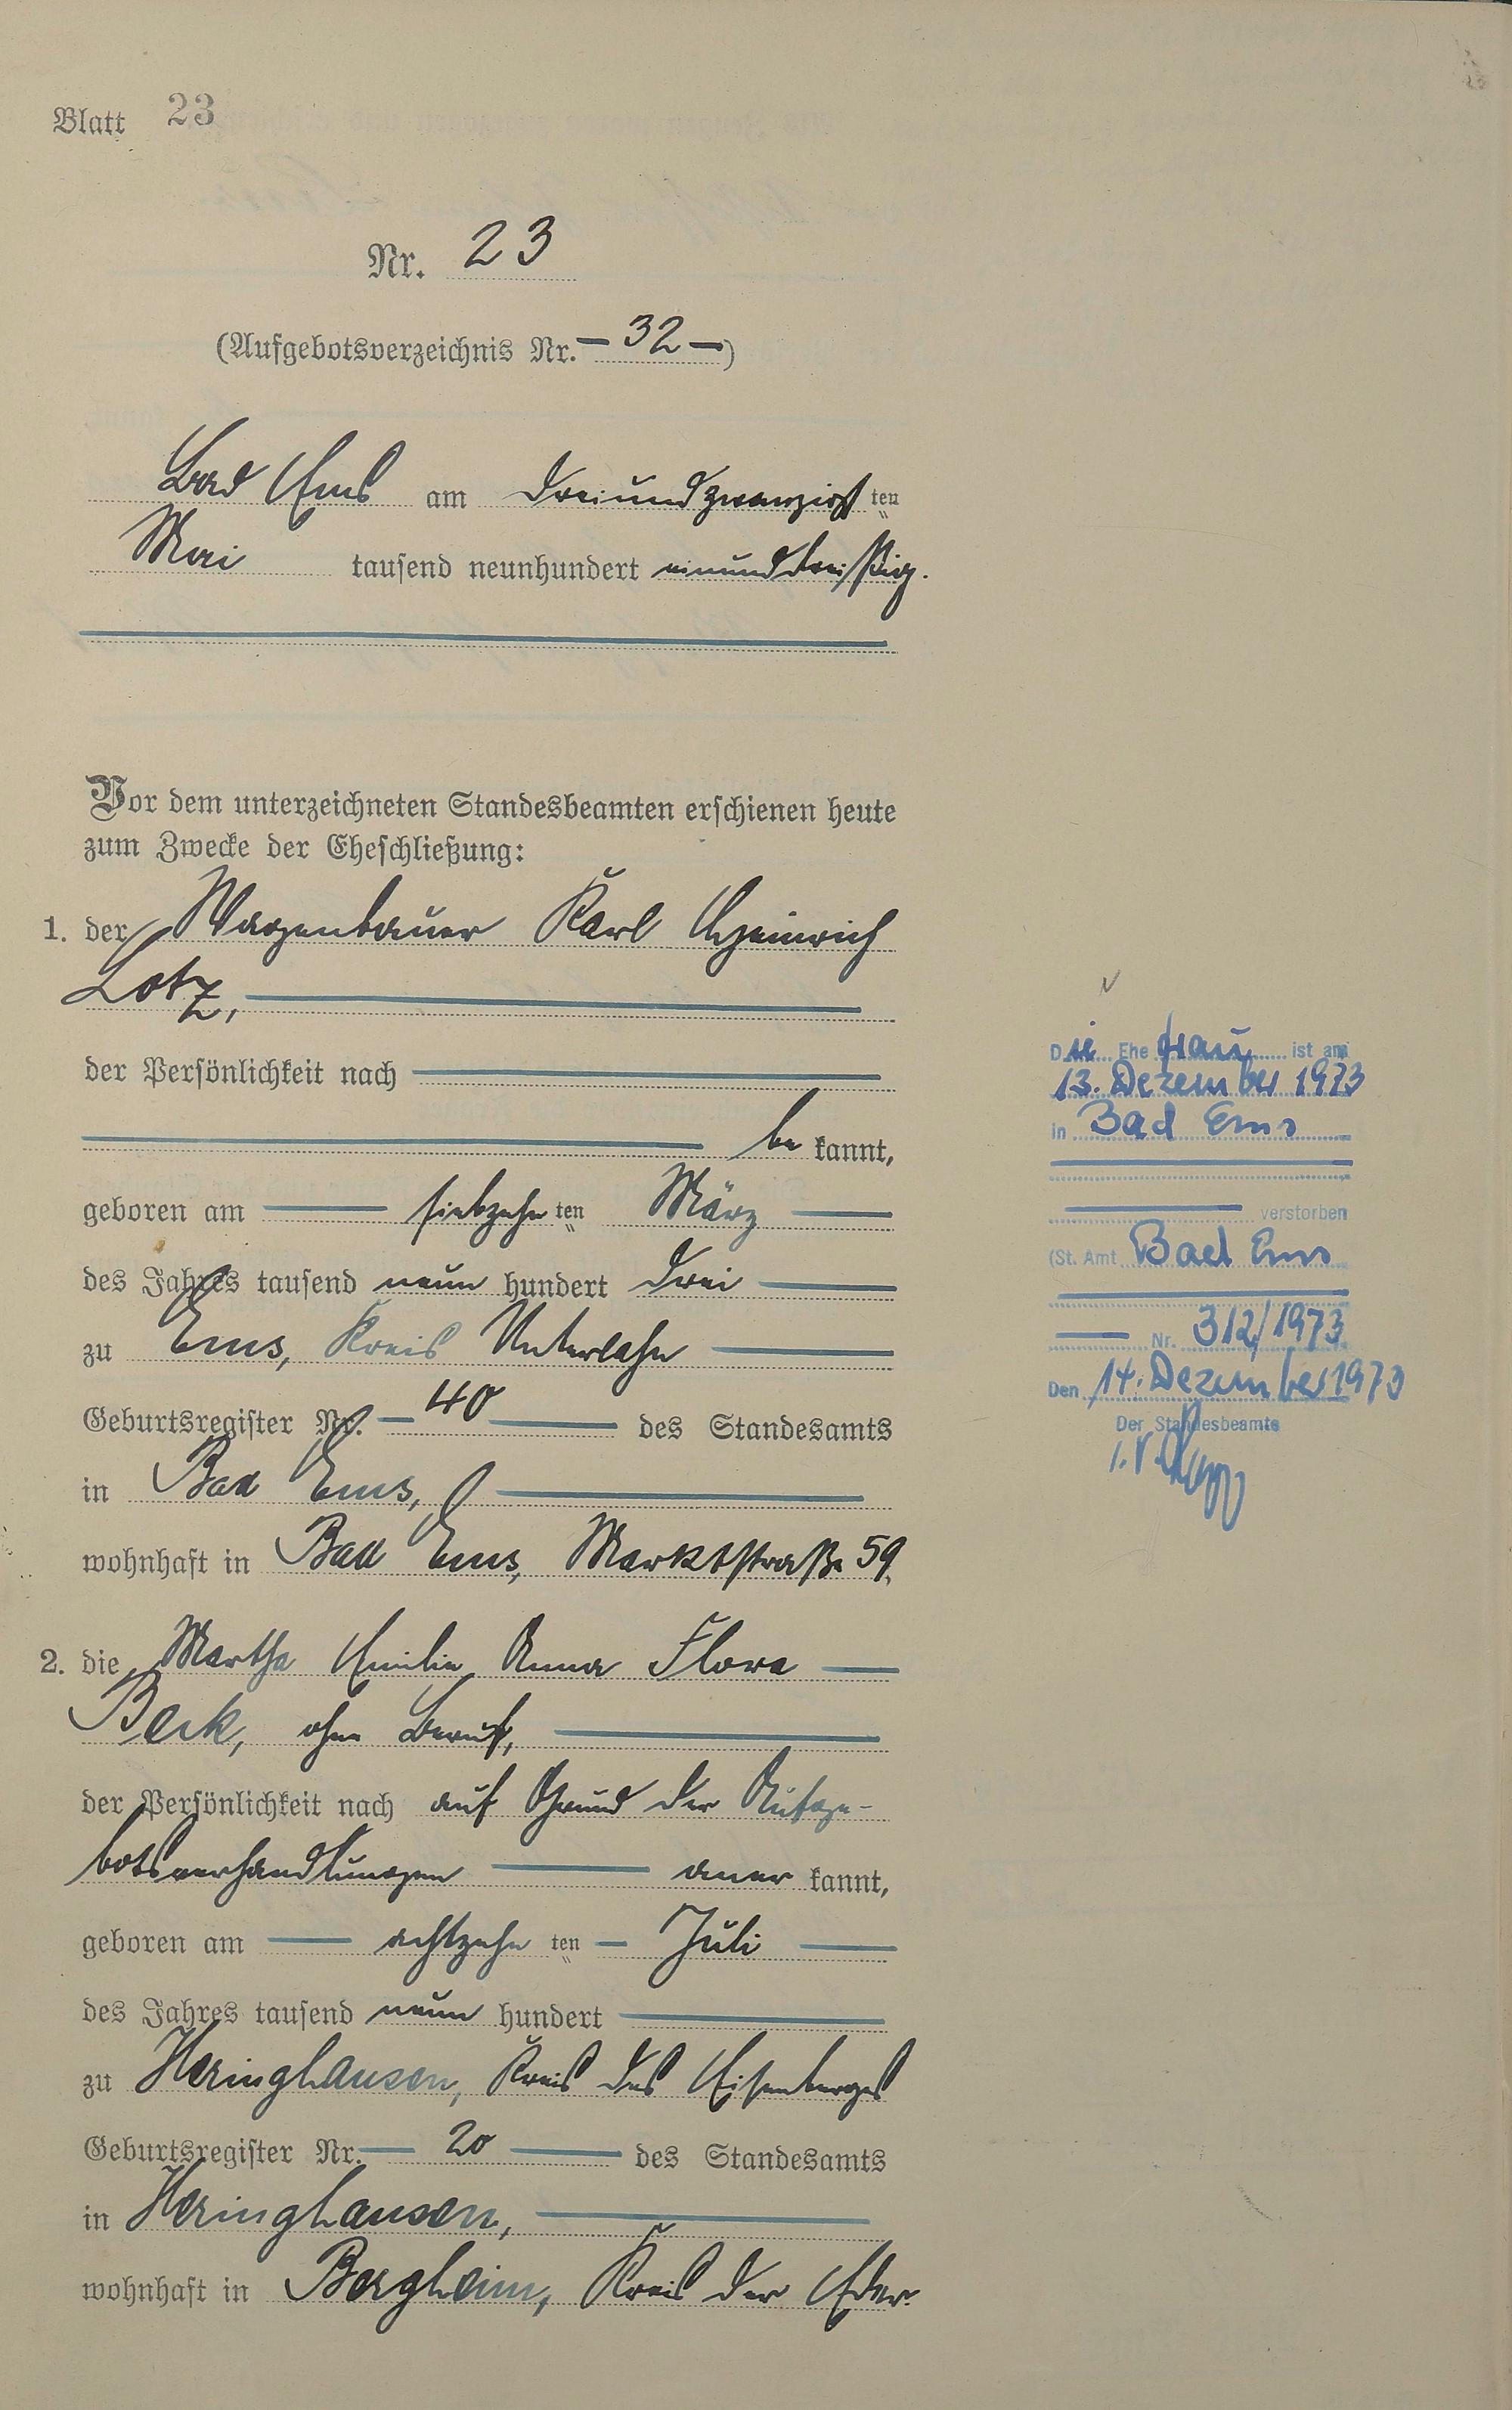 Blatt 23
Nr. 23
(Aufgebotsverzeichnis Nr. 32)
Bad Ems am dreiundzwanzigsten
Mai tausend neunhundert einunddreißig.
Vor dem unterzeichneten Standesbeamten erschienen heute
zum Zwecke der Eheschließung:
1. der Wagenbauer Karl Heinrich
Lotz,
der Persönlichkeit nach
be kannt,
geboren am siebzehnten März
des Jahres tausend neun hundert drei
zu Ems, Kreis Unterlahn
Geburtsregister Nr. 40 des Standesamts
in Bad Ems,
wohnhaft in Bad Ems, Marktstraße 59.
2. die Martha Emilie Anna Flora
Beck, ohne Beruf,
der Persönlichkeit nach auf Grund der Aufge-
botsverhandlungen aner kannt,
geboren am achtzehnten Juli
des Jahres tausend neun hundert
zu Heringhausen, Kreis des Eisenberges
Geburtsregister Nr. 20 des Standesamts
in Heringhausen,
wohnhaft in Bergheim, Kreis der Eder.
Die Ehefrau ist am
13. Dezember 1973
in Bad Ems
verstorben
(St. Amt Bad Ems
Nr. 312/1973
Den 14. Dezember 1973
Der Standesbeamte
i.V.